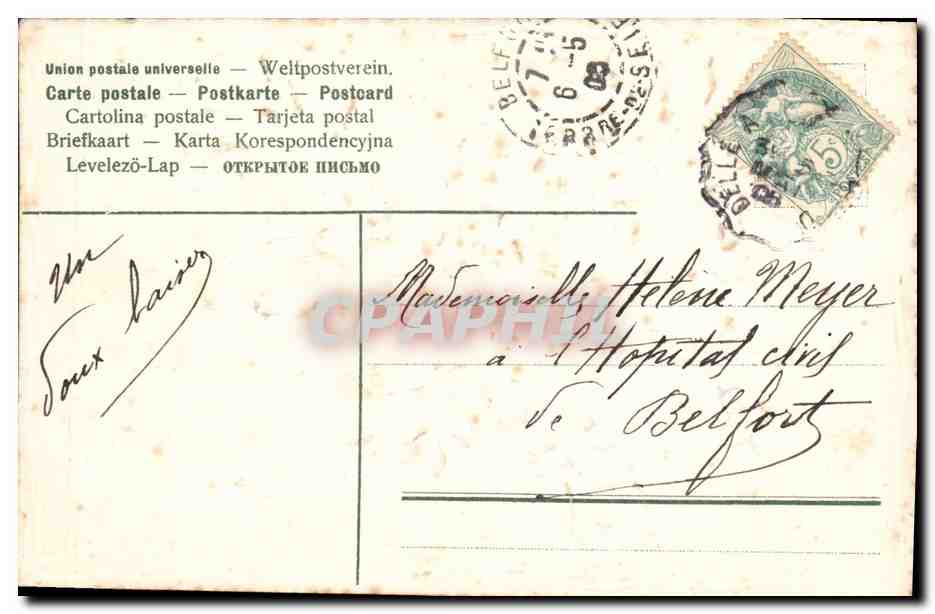 Union postale universelle — Weltpostverein.
Carte postale — Postkarte — Postcard
Cartolina postale — Tarjeta postal
Briefkaart — Karta Korespondencyjna
Levelező-Lap — ОТКРЫТОЕ ПИСЬМО
BELFORT
7 5
6 -5
03
DELLE A
5c
Un
doux baiser
Mademoiselle Hélène Meyer
à l'Hopital civil
de Belfort
CPAPHIL